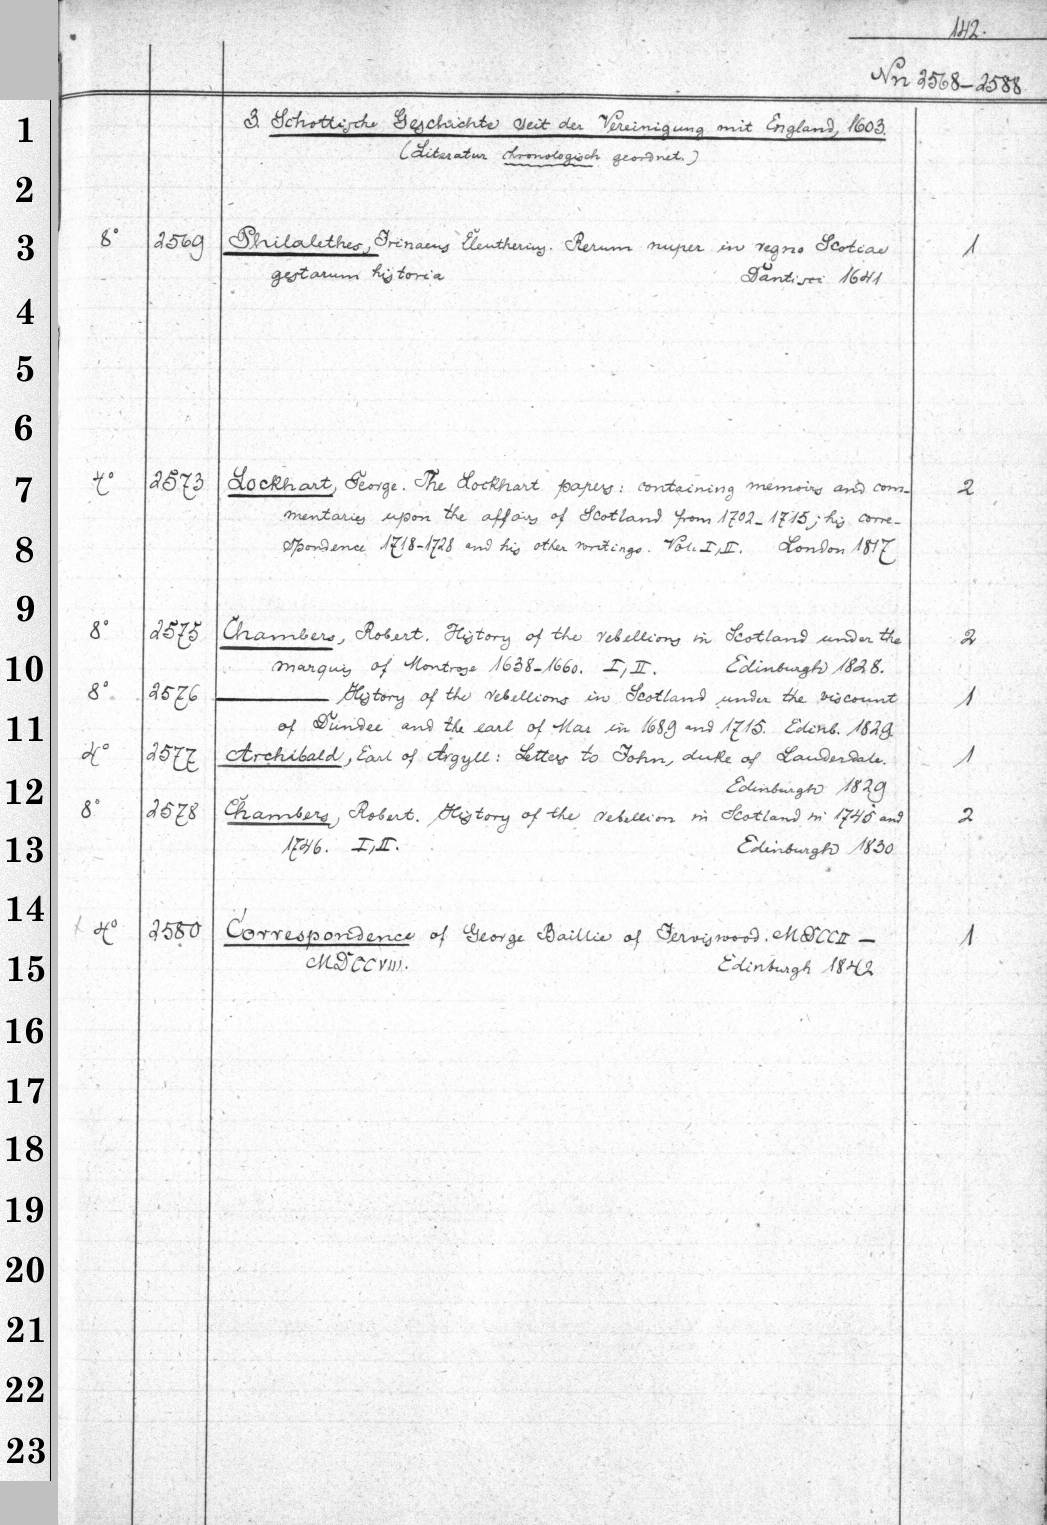 142.
Nn 2568-2588
1
3. Schottische Geschichte seit der Vereinigung mit England, 1603.
(Literatur chronologisch geordnet.)
2
3
8° 2569 Philalethes, Irinaeus Eleutherius. Rerum nuper in regno Scotiae 1
gestarum historia Dantisci 1641
4
5
6
7
4° 2573 Lockhart, George. The Lockhart papers: containing memoirs and com- 2
mentaries upon the affairs of Scotland from 1702-1715; his corre-
8
spondence 1718-1728 and his other writings. Vol. I, II. London 1817
9
8° 2575 Chambers, Robert. History of the rebellions in Scotland under the 2
10
marquis of Montrose 1638-1660. I, II. Edinburgh 1828.
8° 2576 ——— History of the rebellions in Scotland under the viscount 1
11
of Dundee and the earl of Mar in 1689 and 1715. Edinb. 1829
4° 2577 Archibald, Earl of Argyll: Letters to John, duke of Lauderdale. 1
12
Edinburgh 1829
8° 2578 Chambers, Robert. History of the rebellion in Scotland in 1745 and 2
13
1746. I, II. Edinburgh 1830
14
4° 2580 Correspondence of George Baillie of Jerviswood. MDCCII — 1
15
MDCCVIII. Edinburgh 1842
16
17
18
19
20
21
22
23